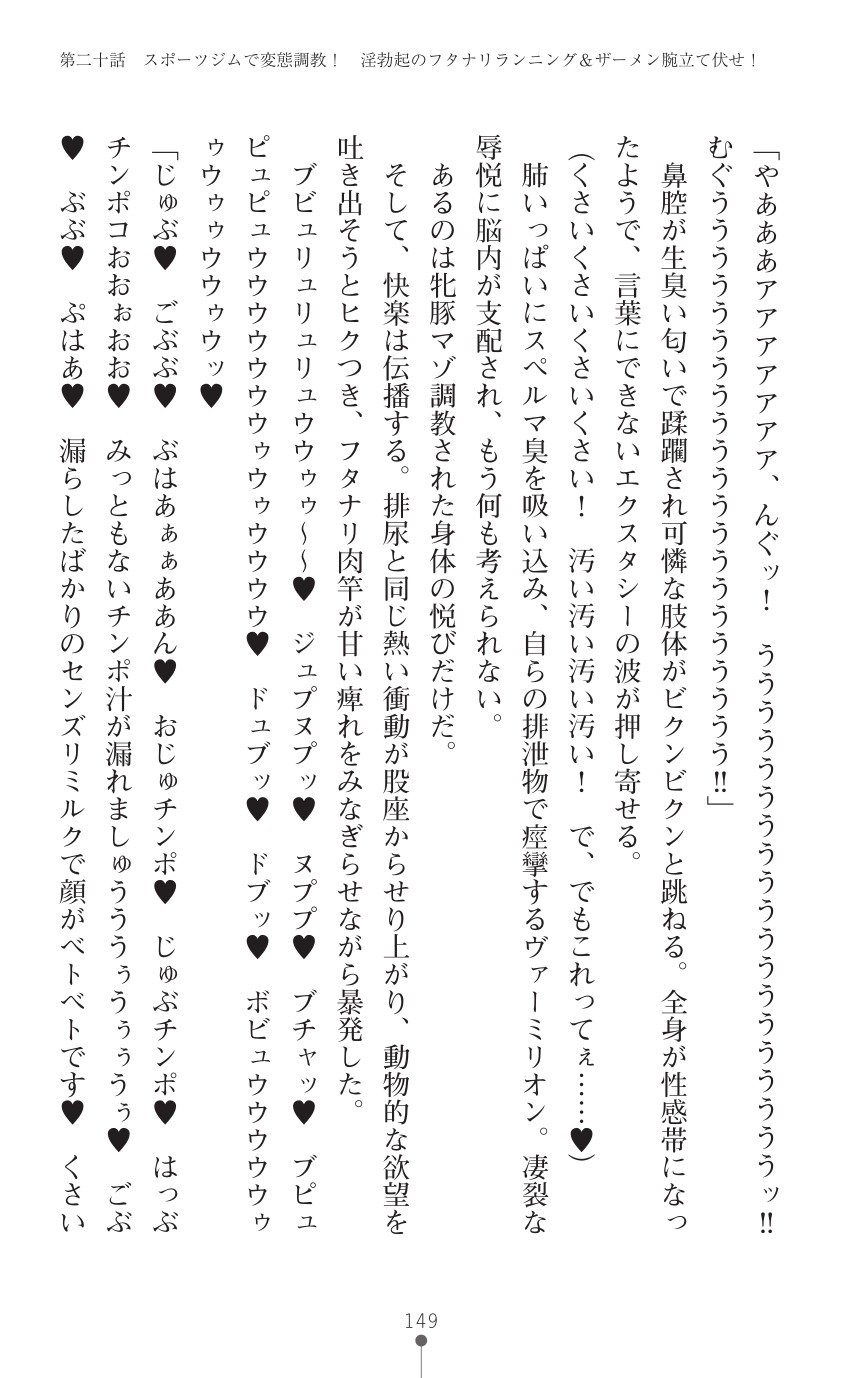 第二十話　スポーツジムで変態調教！　淫勃起のフタナリランニング＆ザーメン腕立て伏せ！
「やあああアアアアアアア、んぐッ！　うううううううううううううううううううッ!!
むぐううううううううううううううううううう!!」
　鼻腔が生臭い匂いで蹂躙され可憐な肢体がビクンビクンと跳ねる。全身が性感帯になっ
たようで、言葉にできないエクスタシーの波が押し寄せる。
（くさいくさいくさいくさい！　汚い汚い汚い汚い！　で、でもこれってぇ……♥）
　肺いっぱいにスペルマ臭を吸い込み、自らの排泄物で痙攣するヴァーミリオン。凄裂な
辱悦に脳内が支配され、もう何も考えられない。
　あるのは牝豚マゾ調教された身体の悦びだけだ。
　そして、快楽は伝播する。排尿と同じ熱い衝動が股座からせり上がり、動物的な欲望を
吐き出そうとヒクつき、フタナリ肉竿が甘い痺れをみなぎらせながら暴発した。
　ブビュリュリュリュウウゥゥ～～♥　ジュプヌプッ♥　ヌププ♥　ブチャッ♥　ブピュ
ピュピュウウウウウウウゥウゥウウウウ♥　ドュブッ♥　ドブッ♥　ボビュウウウウウゥ
ゥウゥゥウウゥウッ♥
「じゅぶ♥　ごぶぶ♥　ぶはあぁぁああん♥　おじゅチンポ♥　じゅぶチンポ♥　はっぶ
チンポコおおぉおお♥　みっともないチンポ汁が漏れましゅうううぅうぅぅうぅ♥　ごぶ
♥　ぶぶ♥　ぷはあ♥　漏らしたばかりのセンズリミルクで顔がベトベトです♥　くさい
149